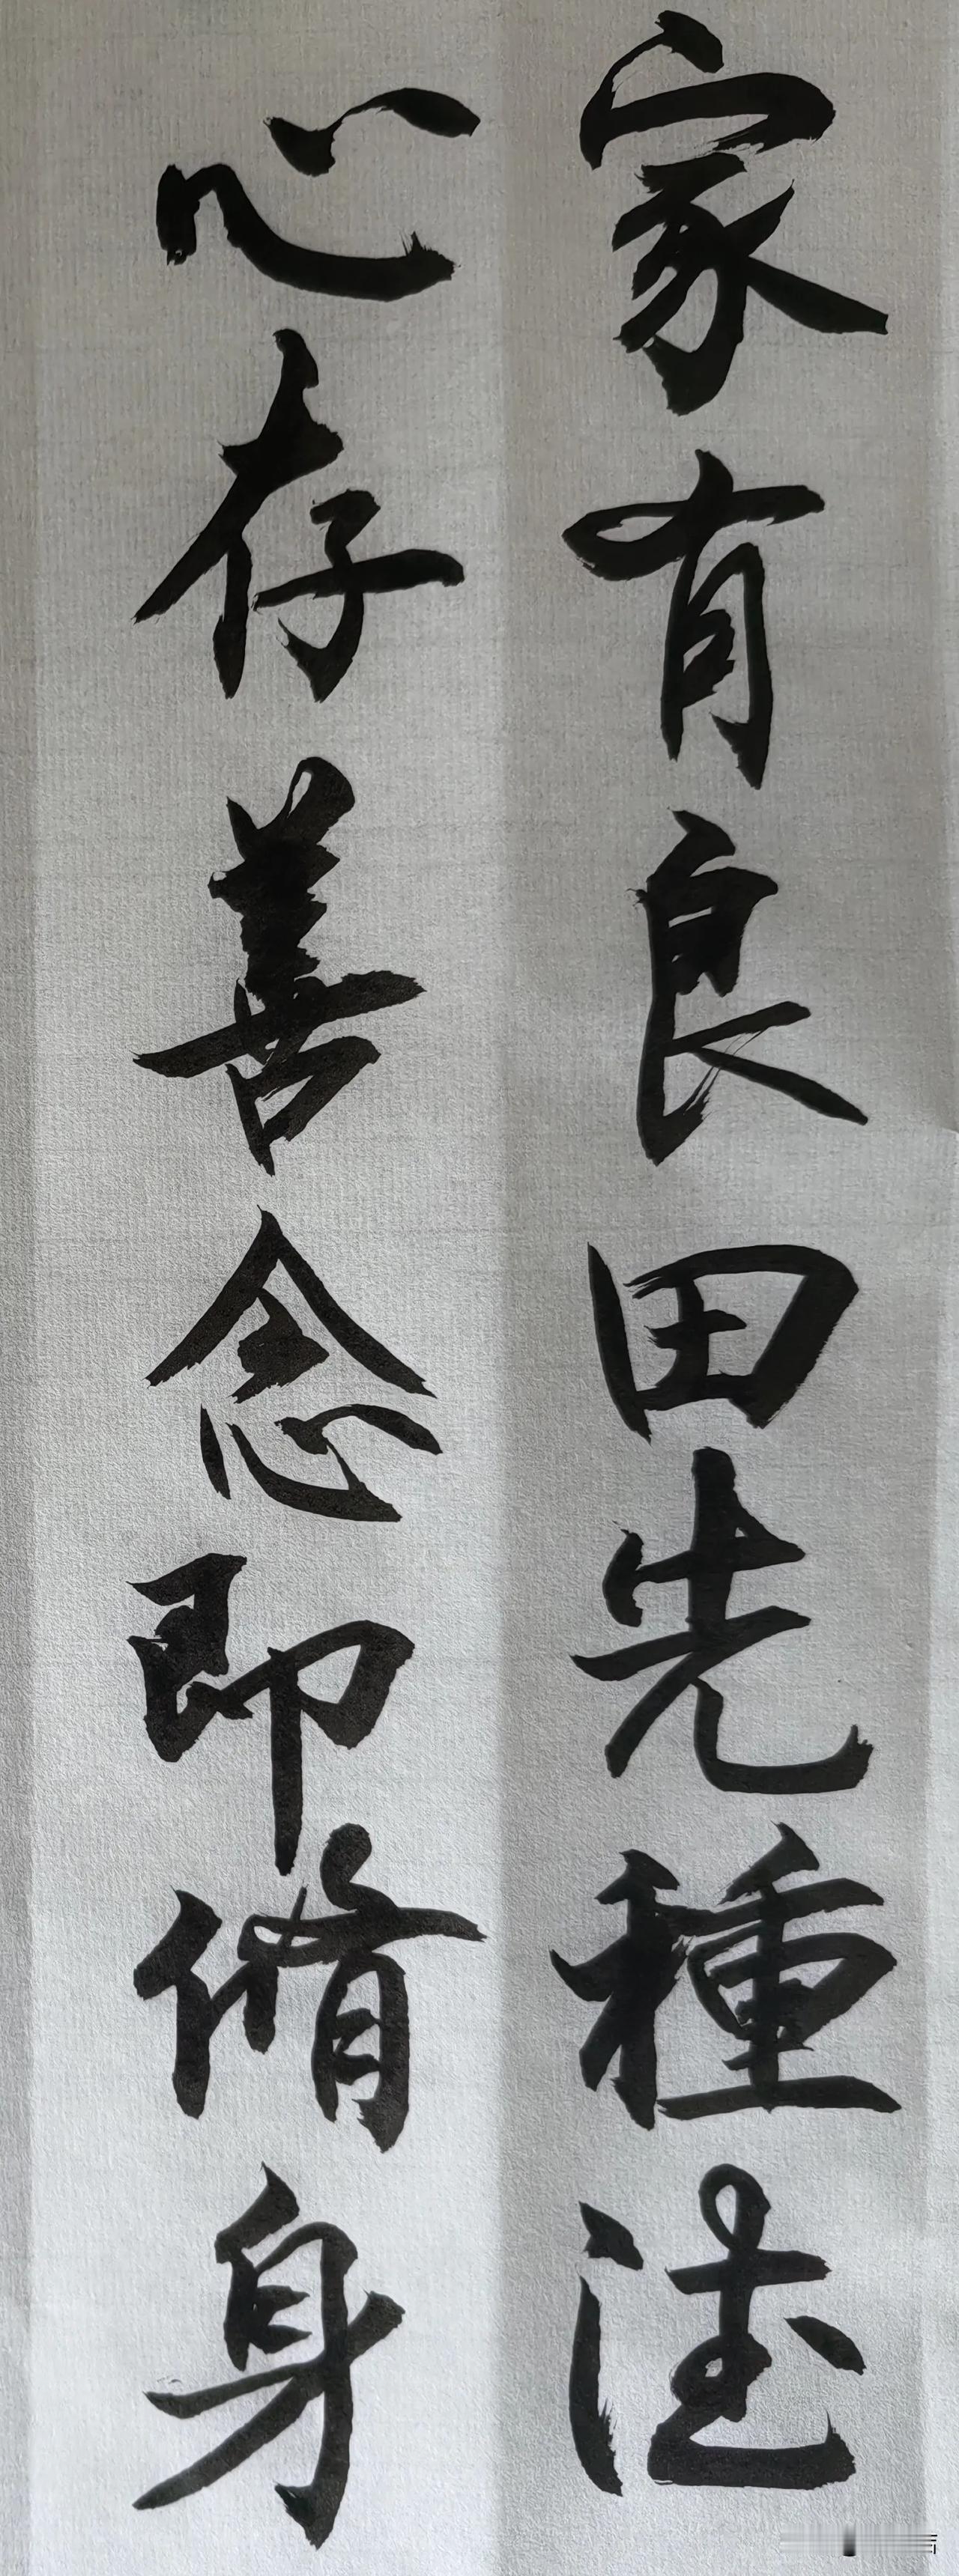 家有良田先種德
心存善念即脩身